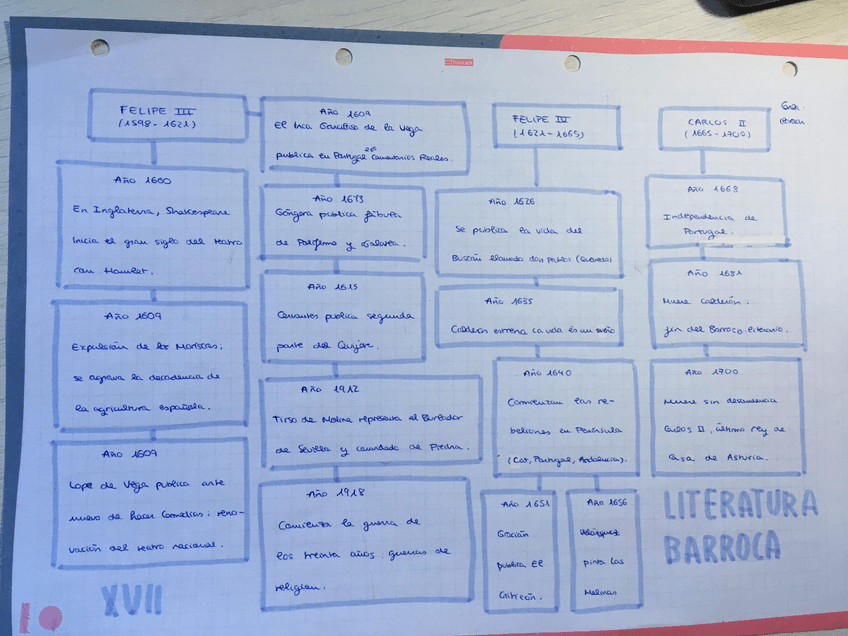 FELIPE III
(1598-1621)
Año 1600
En Inglaterra, Shakespeare
inicia el gran siglo del teatro
con Hamlet.
Año 1609
Expulsión de los Moriscos;
se agrava la decadencia de
la agricultura española.
Año 1609
Lope de Vega publica arte
nuevo de hacer comedias; reno-
vación del teatro nacional.
XVII
Año 1609
El Inca Garcilaso de la Vega
publica en Portugal los Comentarios Reales.
Año 1613
Góngora publica fábula
de Polifemo y Galatea.
Año 1615
Cervantes publica segunda
parte del Quijote.
Año 1912
Tirso de Molina representa el Burlador
de Sevilla y convidado de Piedra.
Año 1918
Comienza la guerra de
los treinta años, guerras de
religión.
FELIPE IV
(1621-1665)
Año 1626
Se publica la vida del
Buscón llamado don Pablos (Quevedo)
Año 1635
Calderón estrena La vida es un sueño
Año 1640
Comienzan las re-
beliones en Península
(Cat, Portugal, Andalucía).
Año 1651
Gracián
publica El
Criticón.
Año 1656
Velázquez
pinta Las
Meninas
CARLOS II
(1665-1700)
Año 1668
Independencia de
Portugal.
Año 1681
Muere Calderón:
fin del Barroco literario.
Año 1700
Muere sin descendencia
Carlos II, último rey de
Casa de Asturia.
LITERATURA
BARROCA